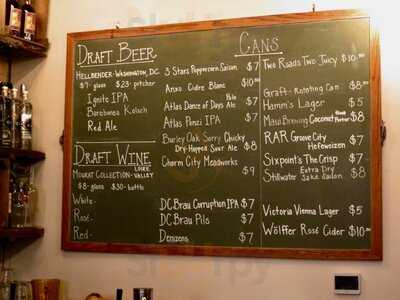 DRAFT BEER
HELLBENDER-WASHINGTON, DC
$7-glass $23-pitcher
Ignite IPA
Bare Bones Kolsch
Red Ale
DRAFT WINE
MOURAT COLLECTION-LOIRE VALLEY
$8-glass $30-bottle
White-
Rosé-
Red-
CANS
3 Stars Peppercorn Saison $7
Anxo Cidre Blanc $10.00
Atlas Dance of Days Pale Ale $7
Atlas Ponzi IPA $7
Burley Oak Sorry Chucky
Dry-Hopped Sour Ale $8
Charm City Meadworks
$9
DC Brau Corruption IPA $7
DC Brau Pils $7
Denizens $7
Two Roads Two Juicy $10.00
Graft- Rotating Can $8
Hamm's Lager $5
Maui Brewing Coconut Porter $8
RAR Groove City $7
Hefeweizen
Sixpoint's The Crisp $7
Stillwater Extra Dry $8
Sake Saison
Victoria Vienna Lager $5
Wölffer Rosé Cider $10.00